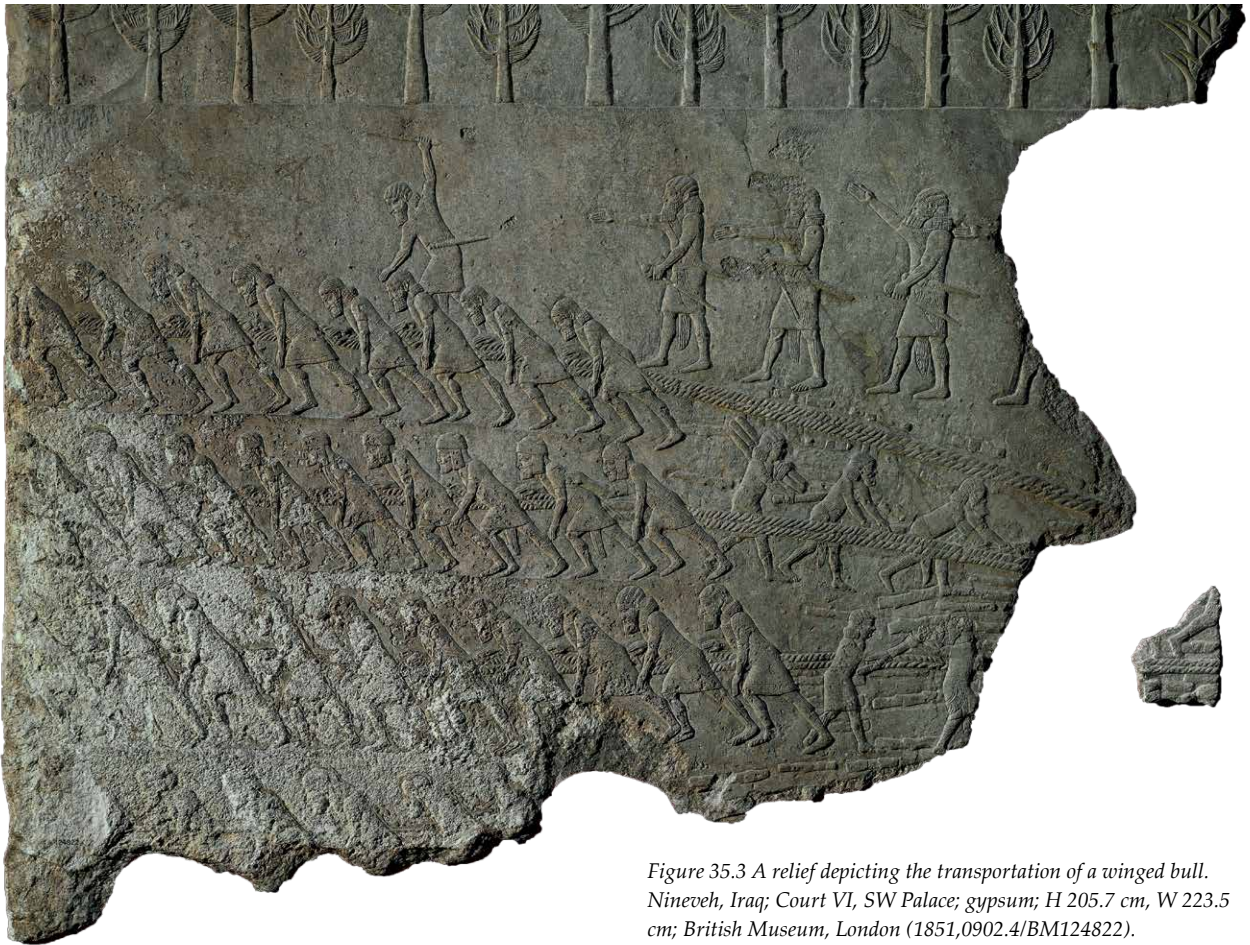 Figure 35.3 A relief depicting the transportation of a winged bull.
Nineveh, Iraq; Court VI, SW Palace; gypsum; H 205.7 cm, W 223.5
cm; British Museum, London (1851,0902.4/BM124822).